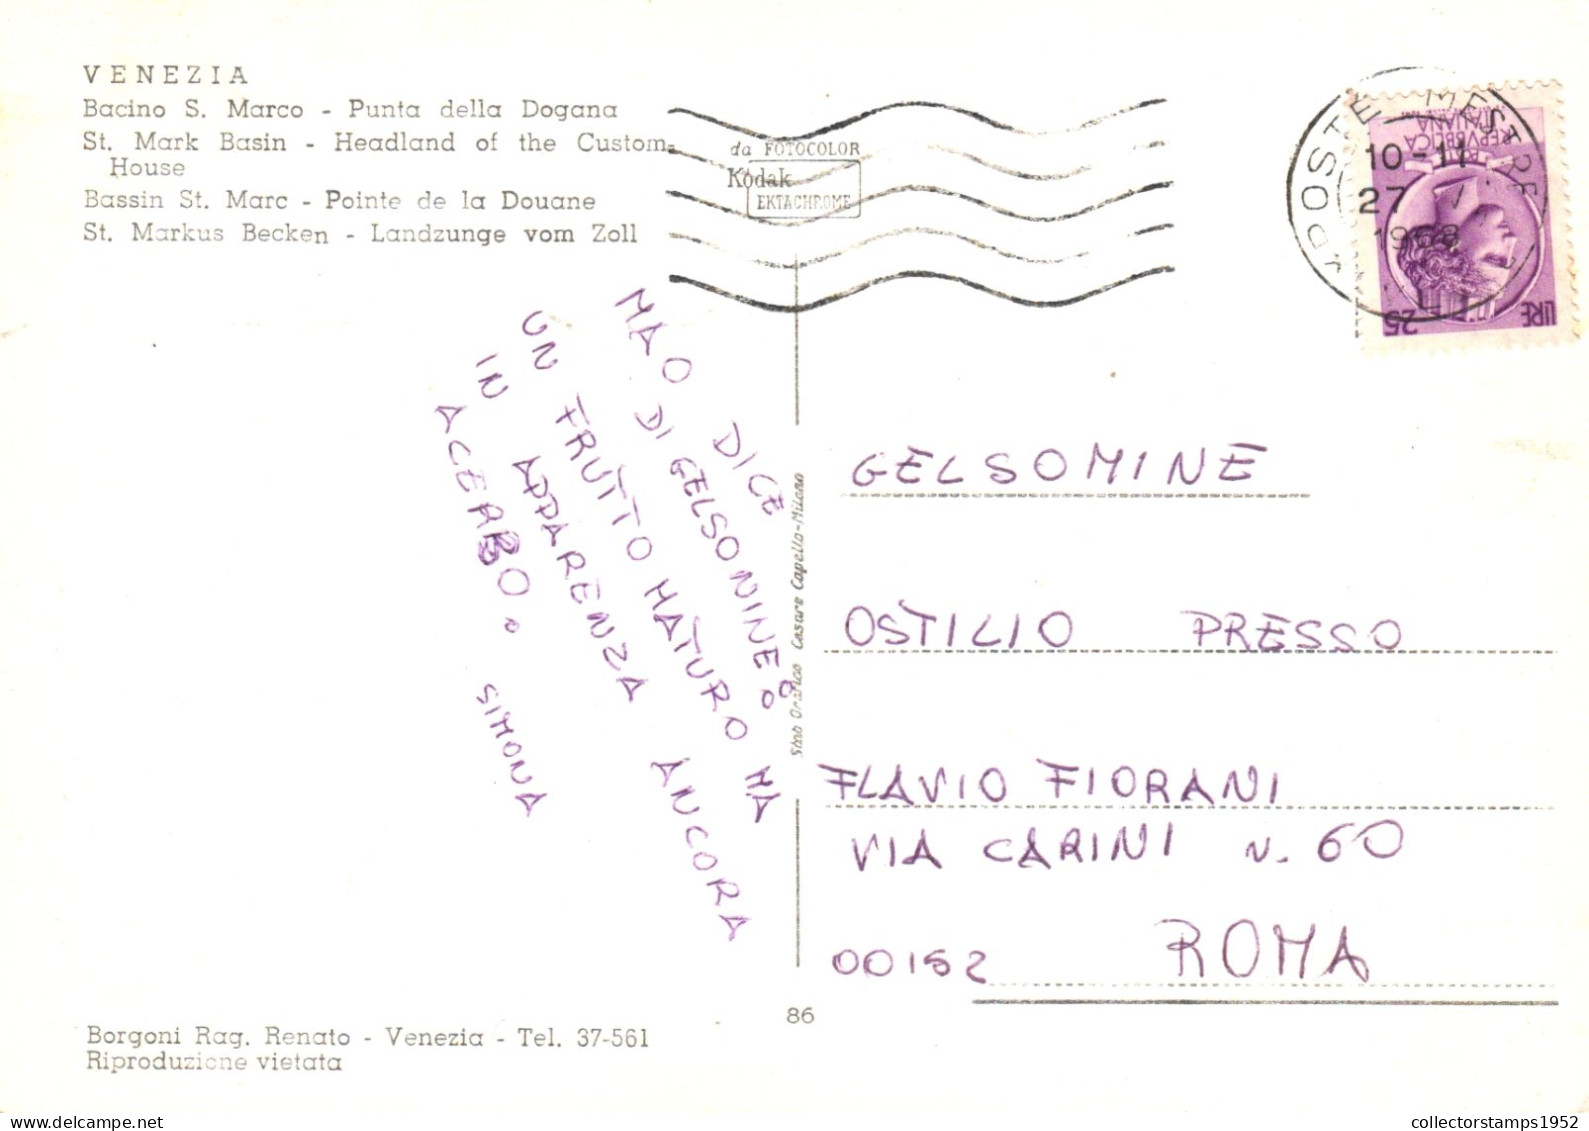 VENEZIA
Bacino S. Marco - Punta della Dogana
St. Mark Basin - Headland of the Custom-
House
Bassin St. Marc - Pointe de la Douane
St. Markus Becken - Landzunge vom Zoll
da FOTOCOLOR
Kodak
EKTACHROME
POSTE MESTRE
10-11
27
1968
REPVBBLICA
ITALIANA
LIRE 25
MAO DICE
DI GELSOMINE:
UN FRUTTO MATURO MA
IN APPARENZA ANCORA
ACERBO.
SIMONA
Cesare Capello-Milano
GELSOMINE
OSTILIO PRESSO
FLAVIO FIORANI
VIA CARINI N. 60
00152 ROMA
86
Borgoni Rag. Renato - Venezia - Tel. 37-561
Riproduzione vietata
collectorstamps1952